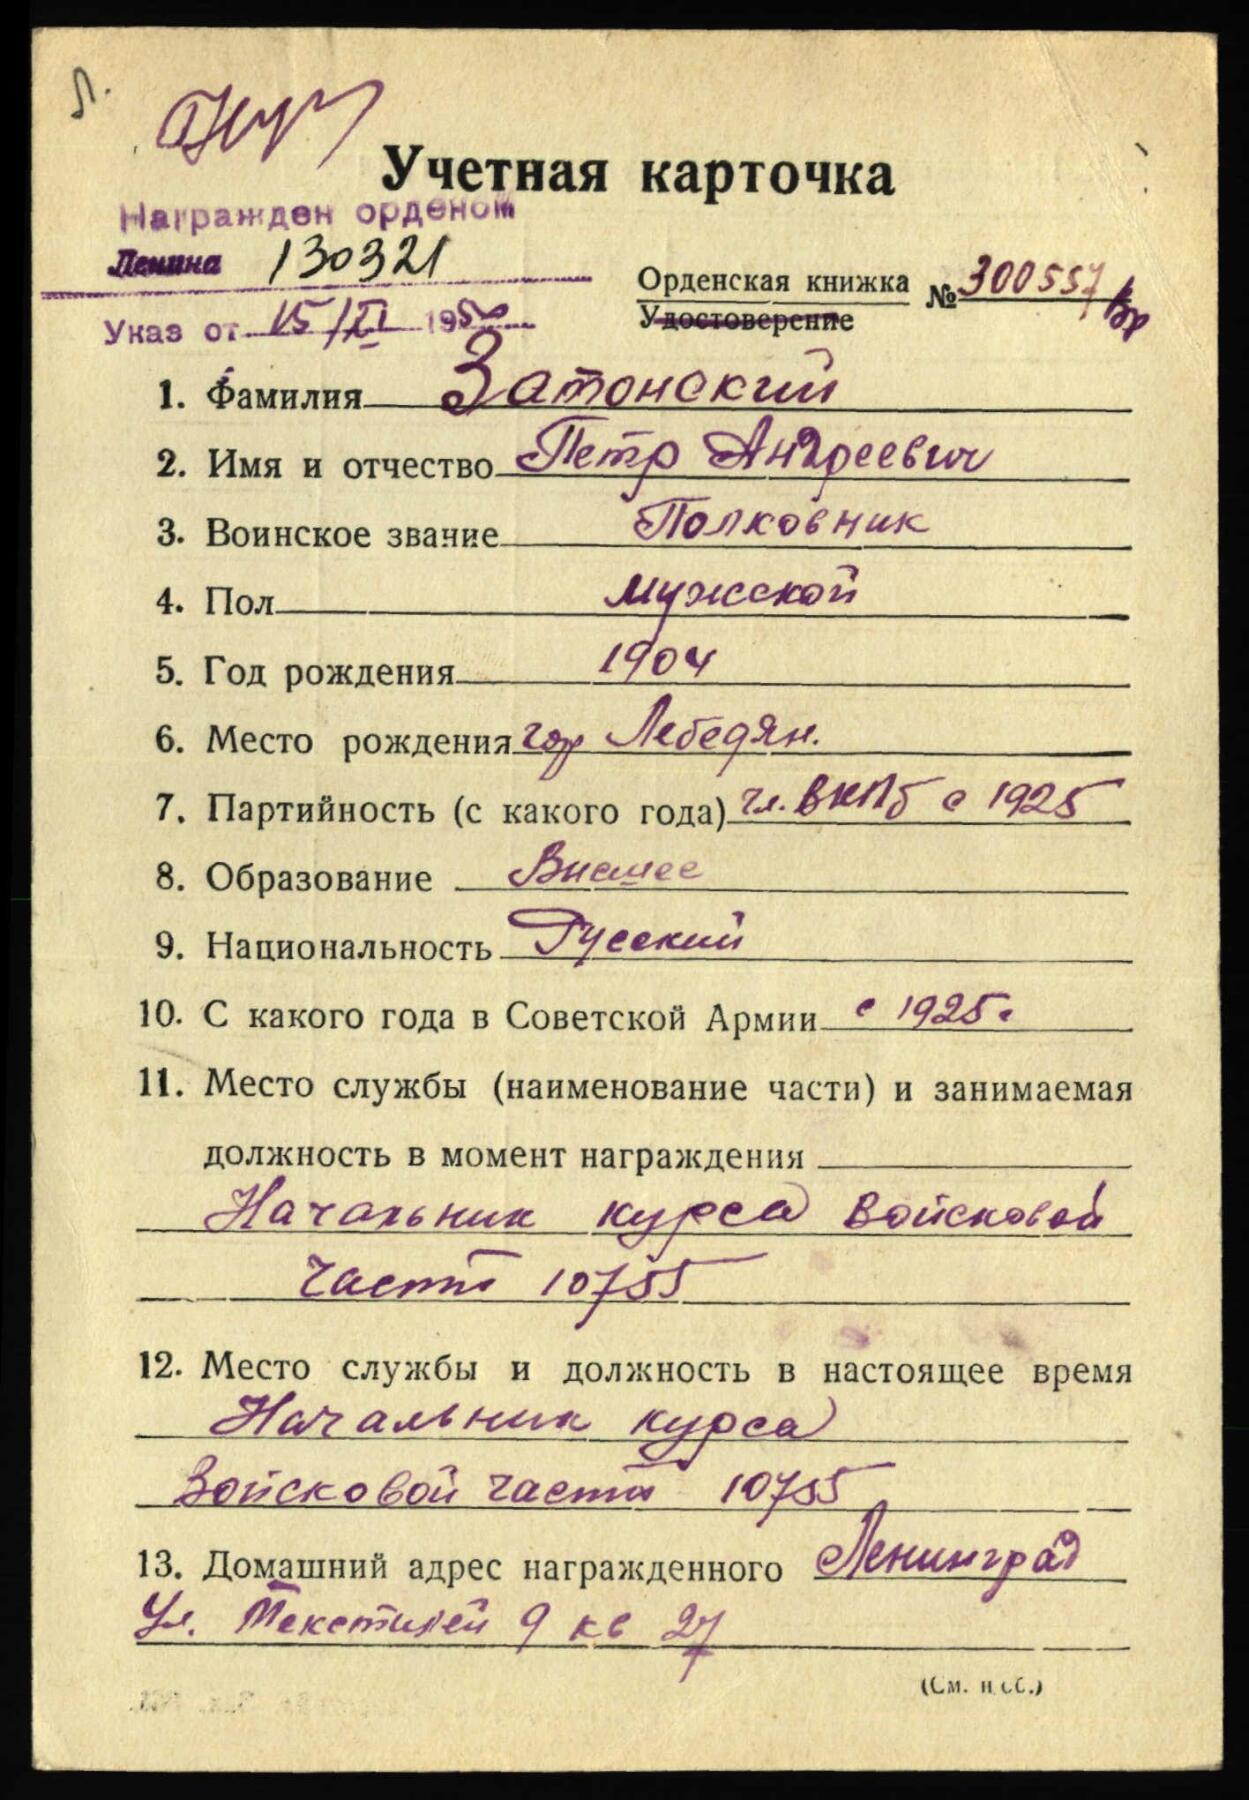 Л.
Учетная карточка
Награжден орденом
Ленина 130321
Орденская книжка № 300557
Удостоверение
Указ от 15/XI 1950
1. Фамилия Затонский
2. Имя и отчество Петр Андреевич
3. Воинское звание Полковник
4. Пол мужской
5. Год рождения 1904
6. Место рождения гор Лебедян.
7. Партийность (с какого года) чл. ВКПб с 1925
8. Образование Высшее
9. Национальность Русский
10. С какого года в Советской Армии с 1925 г
11. Место службы (наименование части) и занимаемая
должность в момент награждения
Начальник курса войсковой
части 10755
12. Место службы и должность в настоящее время
Начальник курса
Войсковой части 10755
13. Домашний адрес награжденного Ленинград
Ул. Текстилей 9 кв 27
(См. н об.)